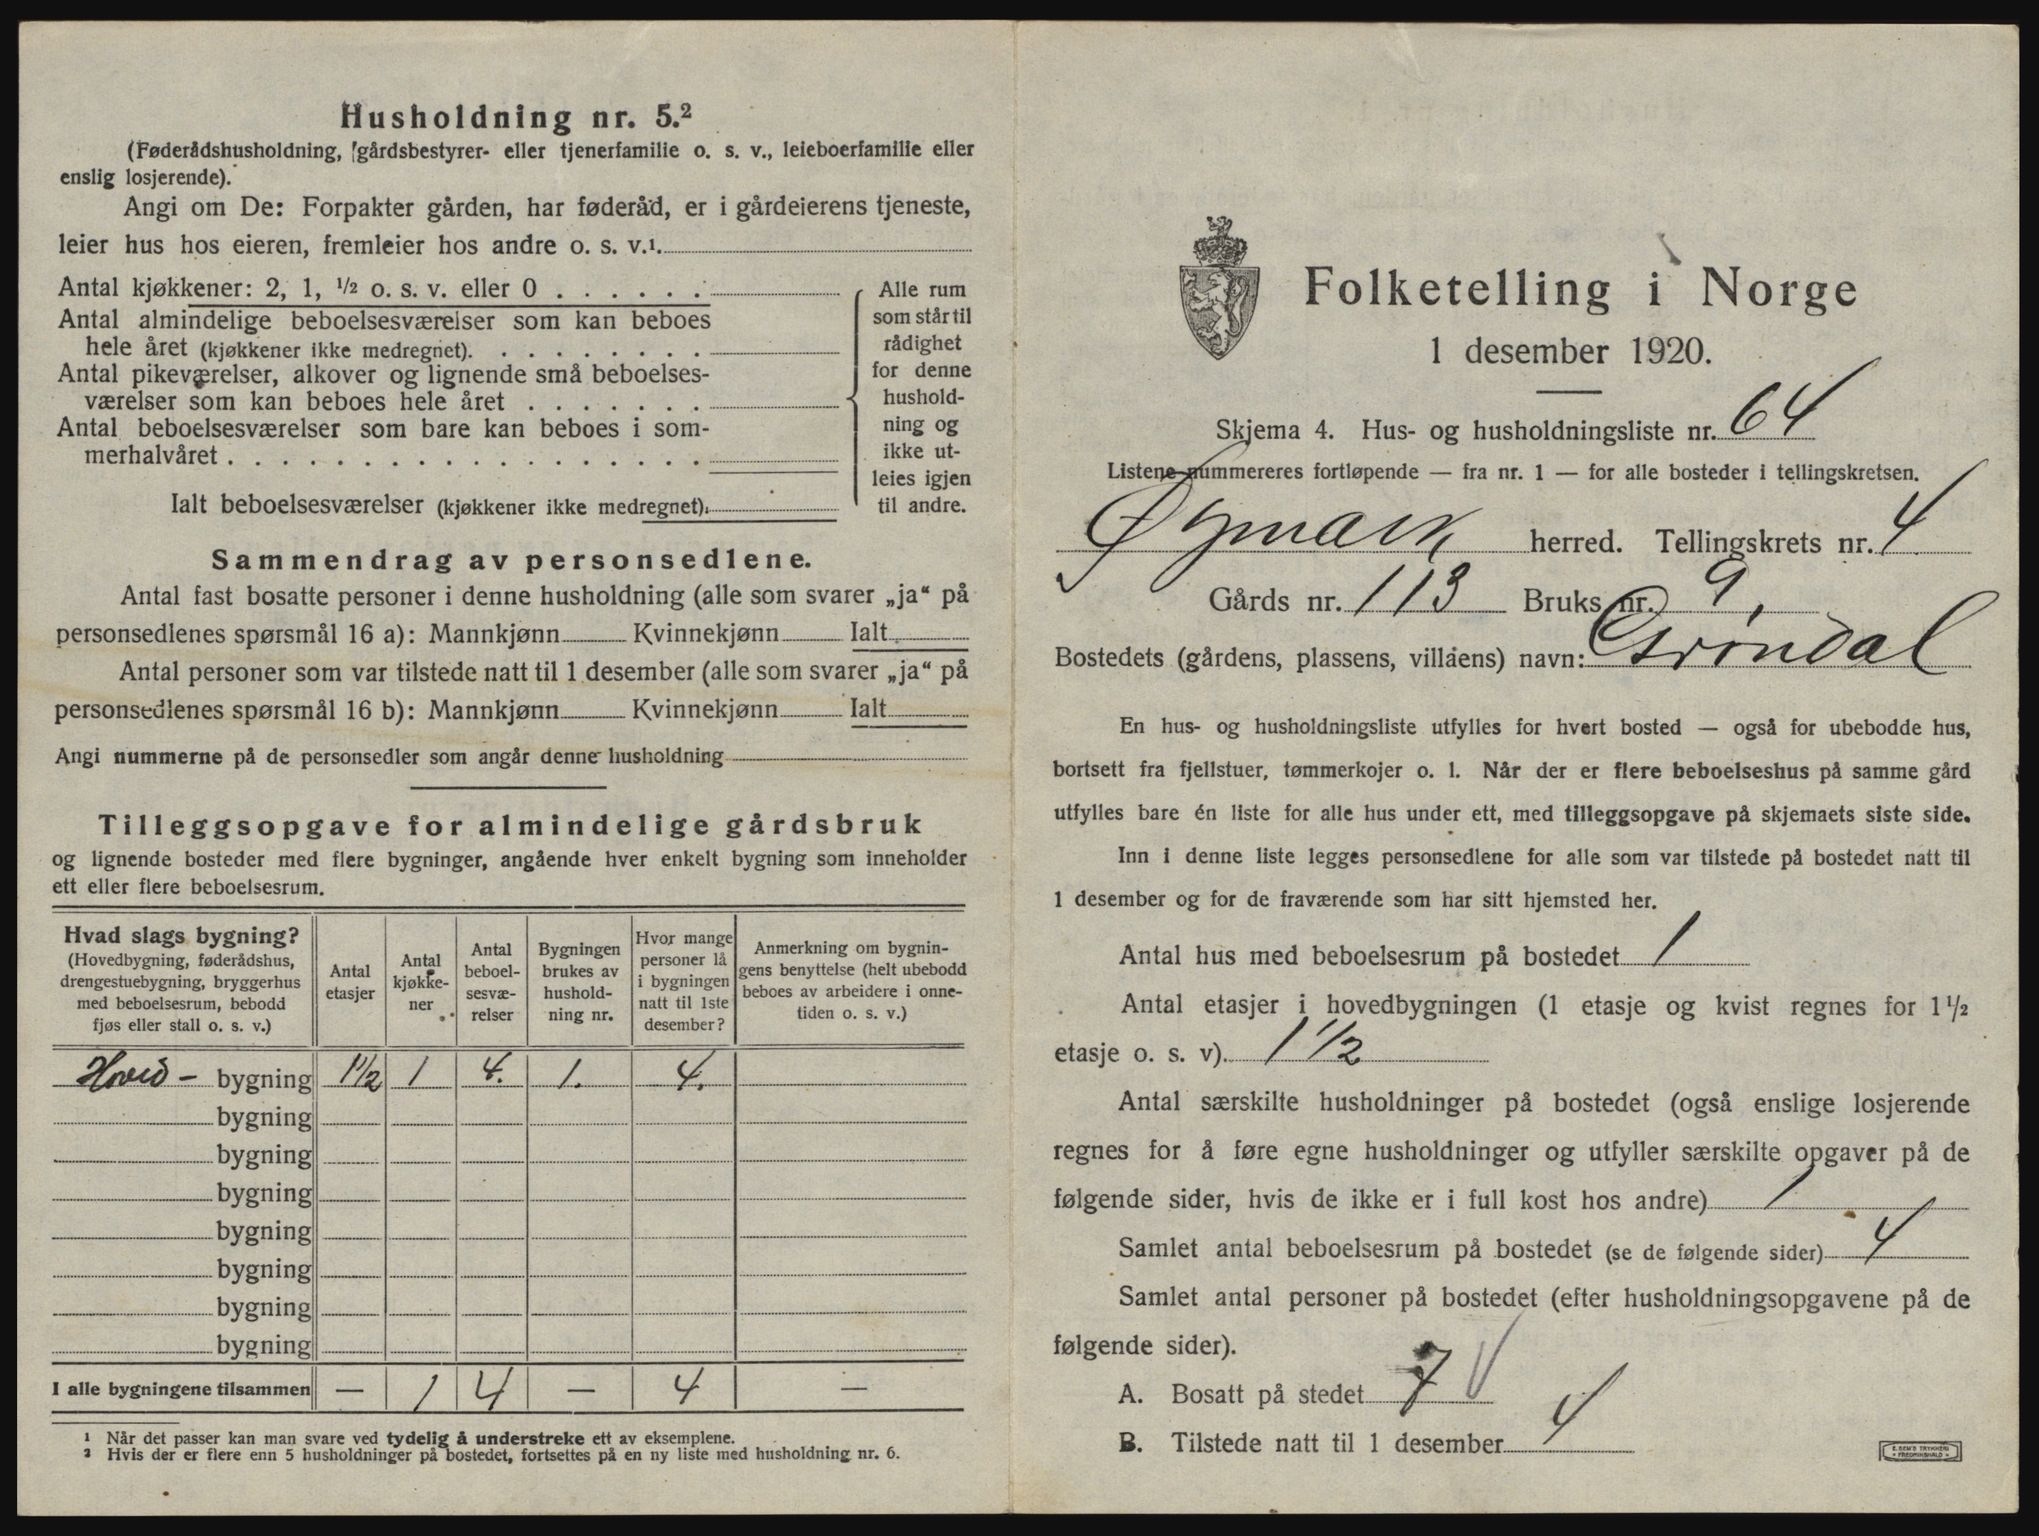 Husholdning nr. 5.²
(Føderådshusholdning, gårdsbestyrer- eller tjenerfamilie o. s. v., leieboerfamilie eller
enslig losjerende).
Angi om De: Forpakter gården, har føderåd, er i gårdeierens tjeneste,
leier hus hos eieren, fremleier hos andre o. s. v.¹
Antal kjøkkener: 2, 1, ½ o. s. v. eller 0 . . . . . .
Antal almindelige beboelsesværelser som kan beboes
hele året (kjøkkener ikke medregnet). . . . . . . . .
Antal pikeværelser, alkover og lignende små beboelses-
værelser som kan beboes hele året . . . . . . .
Antal beboelsesværelser som bare kan beboes i som-
merhalvåret . . . . . . . . . . . . . . . . . .
Alle rum
som står til
rådighet
for denne
hushold-
ning og
ikke ut-
leies igjen
til andre.
Ialt beboelsesværelser (kjøkkener ikke medregnet).
Sammendrag av personsedlene.
Antal fast bosatte personer i denne husholdning (alle som svarer „ja“ på
personsedlenes spørsmål 16 a): Mannkjønn Kvinnekjønn Ialt
Antal personer som var tilstede natt til 1 desember (alle som svarer „ja“ på
personsedlenes spørsmål 16 b): Mannkjønn Kvinnekjønn Ialt
Angi nummerne på de personsedler som angår denne husholdning
Tilleggsopgave for almindelige gårdsbruk
og lignende bosteder med flere bygninger, angående hver enkelt bygning som inneholder
ett eller flere beboelsesrum.
Hvad slags bygning?
(Hovedbygning, føderådshus,
drengestuebygning, bryggerhus
med beboelsesrum, bebodd
fjøs eller stall o. s. v.)
Antal
etasjer
Antal
kjøkke-
ner
Antal
beboel-
sesvæ-
relser
Bygningen
brukes av
hushold-
ning nr.
Hvor mange
personer lå
i bygningen
natt til 1ste
desember?
Anmerkning om bygnin-
gens benyttelse (helt ubebodd
beboes av arbeidere i onne-
tiden o. s. v.)
Hoved- bygning 1½ 1 4. 1. 4.
bygning
bygning
bygning
bygning
bygning
bygning
bygning
I alle bygningene tilsammen — 1 4 — 4 —
¹ Når det passer kan man svare ved tydelig å understreke ett av eksemplene.
² Hvis der er flere enn 5 husholdninger på bostedet, fortsettes på en ny liste med husholdning nr. 6.
Folketelling i Norge
1 desember 1920.
Skjema 4. Hus- og husholdningsliste nr. 64
Listene nummereres fortløpende — fra nr. 1 — for alle bosteder i tellingskretsen.
Øymark herred. Tellingskrets nr. 4
Gårds nr. 113 Bruks nr. 9,
Bostedets (gårdens, plassens, villaens) navn: Grøndal
En hus- og husholdningsliste utfylles for hvert bosted — også for ubebodde hus,
bortsett fra fjellstuer, tømmerkojer o. l. Når der er flere beboelseshus på samme gård
utfylles bare én liste for alle hus under ett, med tilleggsopgave på skjemaets siste side.
Inn i denne liste legges personsedlene for alle som var tilstede på bostedet natt til
1 desember og for de fraværende som har sitt hjemsted her.
Antal hus med beboelsesrum på bostedet 1
Antal etasjer i hovedbygningen (1 etasje og kvist regnes for 1½
etasje o. s. v). 1½
Antal særskilte husholdninger på bostedet (også enslige losjerende
regnes for å føre egne husholdninger og utfyller særskilte opgaver på de
følgende sider, hvis de ikke er i full kost hos andre) 1
Samlet antal beboelsesrum på bostedet (se de følgende sider) 4
Samlet antal personer på bostedet (efter husholdningsopgavene på de
følgende sider).
A. Bosatt på stedet 7 V
B. Tilstede natt til 1 desember 4
E. SEM'S TRYKKERI
• FREDRIKSHALD •